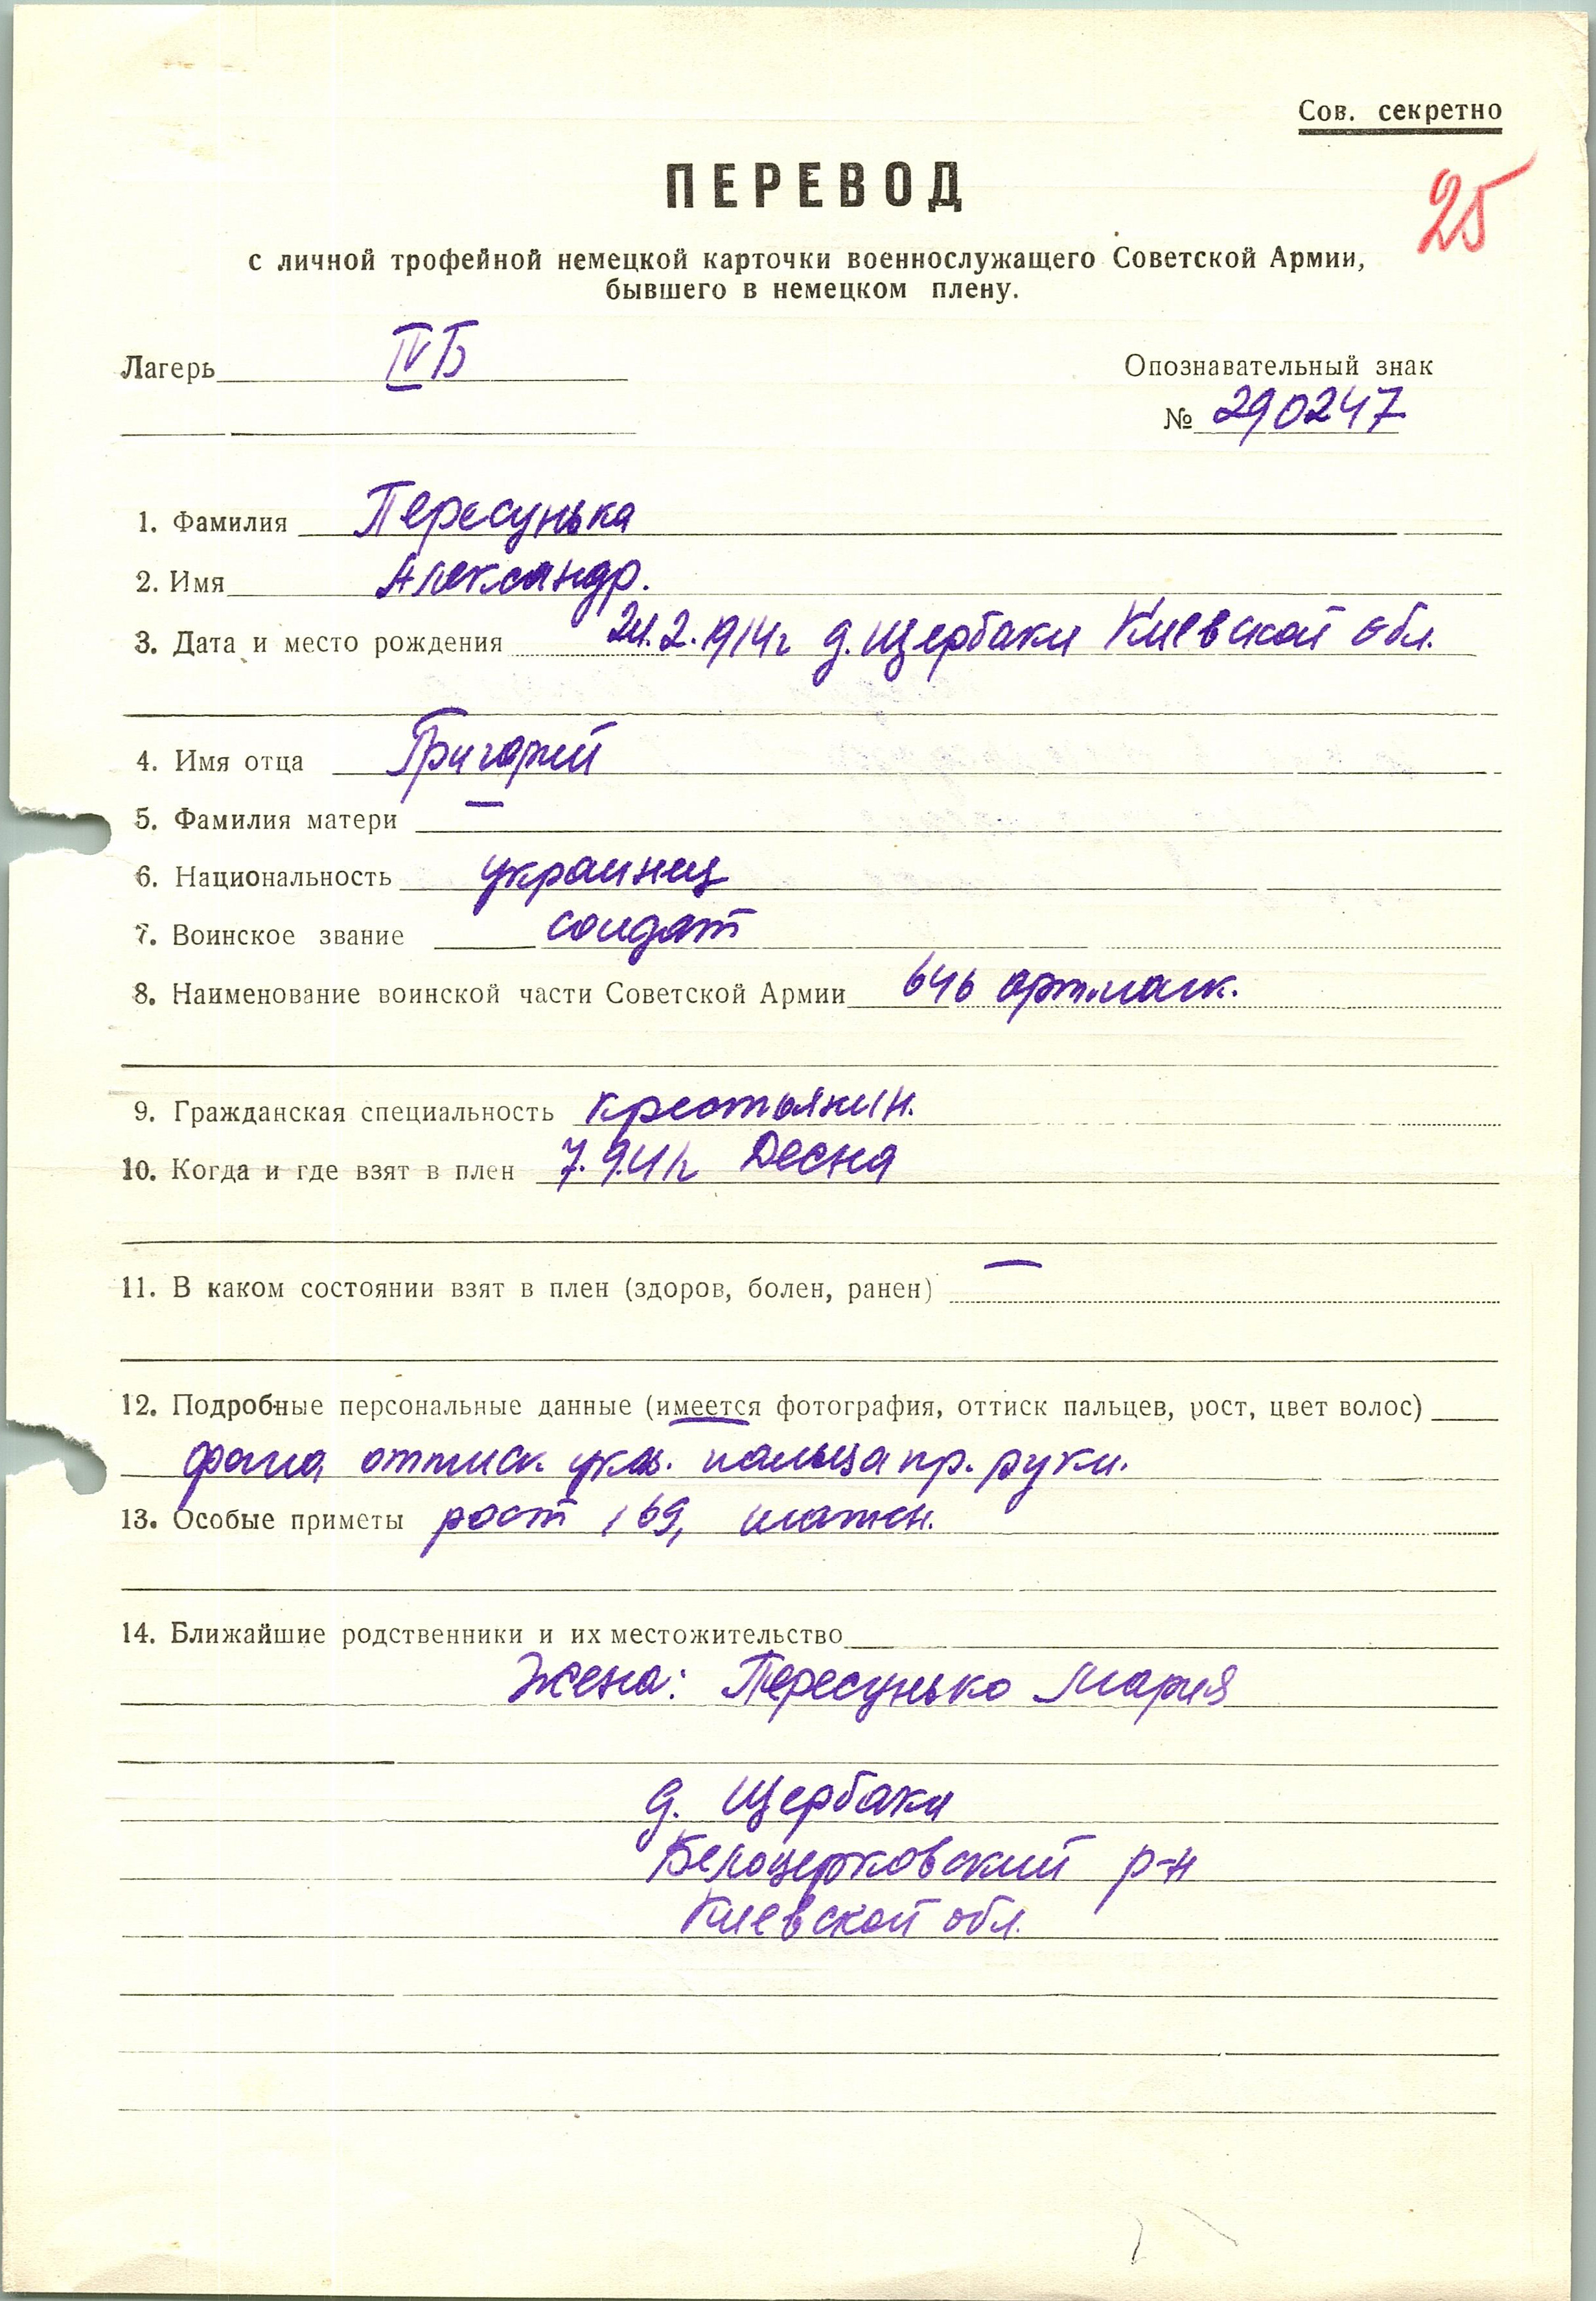 Сов. секретно
ПЕРЕВОД
25
с личной трофейной немецкой карточки военнослужащего Советской Армии,
бывшего в немецком плену.
Лагерь IVБ
Опознавательный знак
№ 290247
1. Фамилия Пересунька
2. Имя Александр.
3. Дата и место рождения 24.2.1914г д. Щербаки Киевской обл.
4. Имя отца Григорий
5. Фамилия матери —
6. Национальность украинец
7. Воинское звание солдат
8. Наименование воинской части Советской Армии 646
9. Гражданская специальность крестьянин.
10. Когда и где взят в плен 7.9.41г Десна
11. В каком состоянии взят в плен (здоров, болен, ранен) —
12. Подробные персональные данные (имеется фотография, оттиск пальцев, рост, цвет волос)
фото, оттиск указ. пальца пр. руки.
13. Особые приметы рост 169, шатен.
14. Ближайшие родственники и их местожительство
Жена: Пересунько Мария
д. Щербаки
Белоцерковский р-н
Киевской обл.